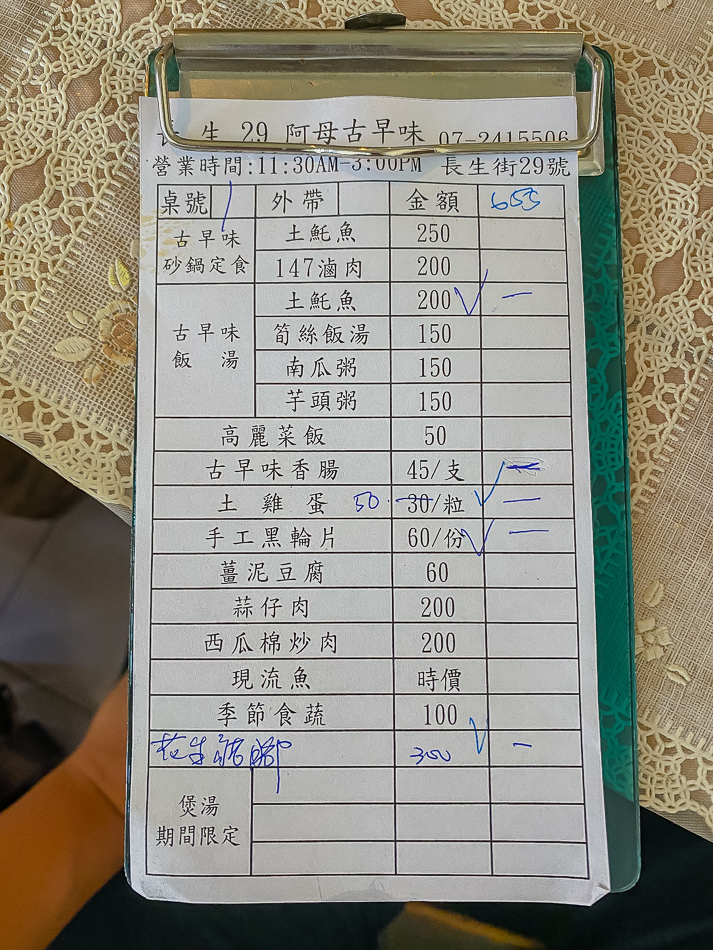 長生 29 阿母古早味 07-2415506
營業時間:11:30AM-3:00PM 長生街29號
桌號 1 外帶 金額 655
古早味砂鍋定食 土魠魚 250
147滷肉 200
古早味飯湯 土魠魚 200 ✓ 一
筍絲飯湯 150
南瓜粥 150
芋頭粥 150
高麗菜飯 50
古早味香腸 45/支 ✓ 一
土雞蛋 50. 30/粒 一
手工黑輪片 60/份 ✓ 一
薑泥豆腐 60
蒜仔肉 200
西瓜棉炒肉 200
現流魚 時價
季節食蔬 100
花生豬腳 300 ✓ 一
煲湯
期間限定